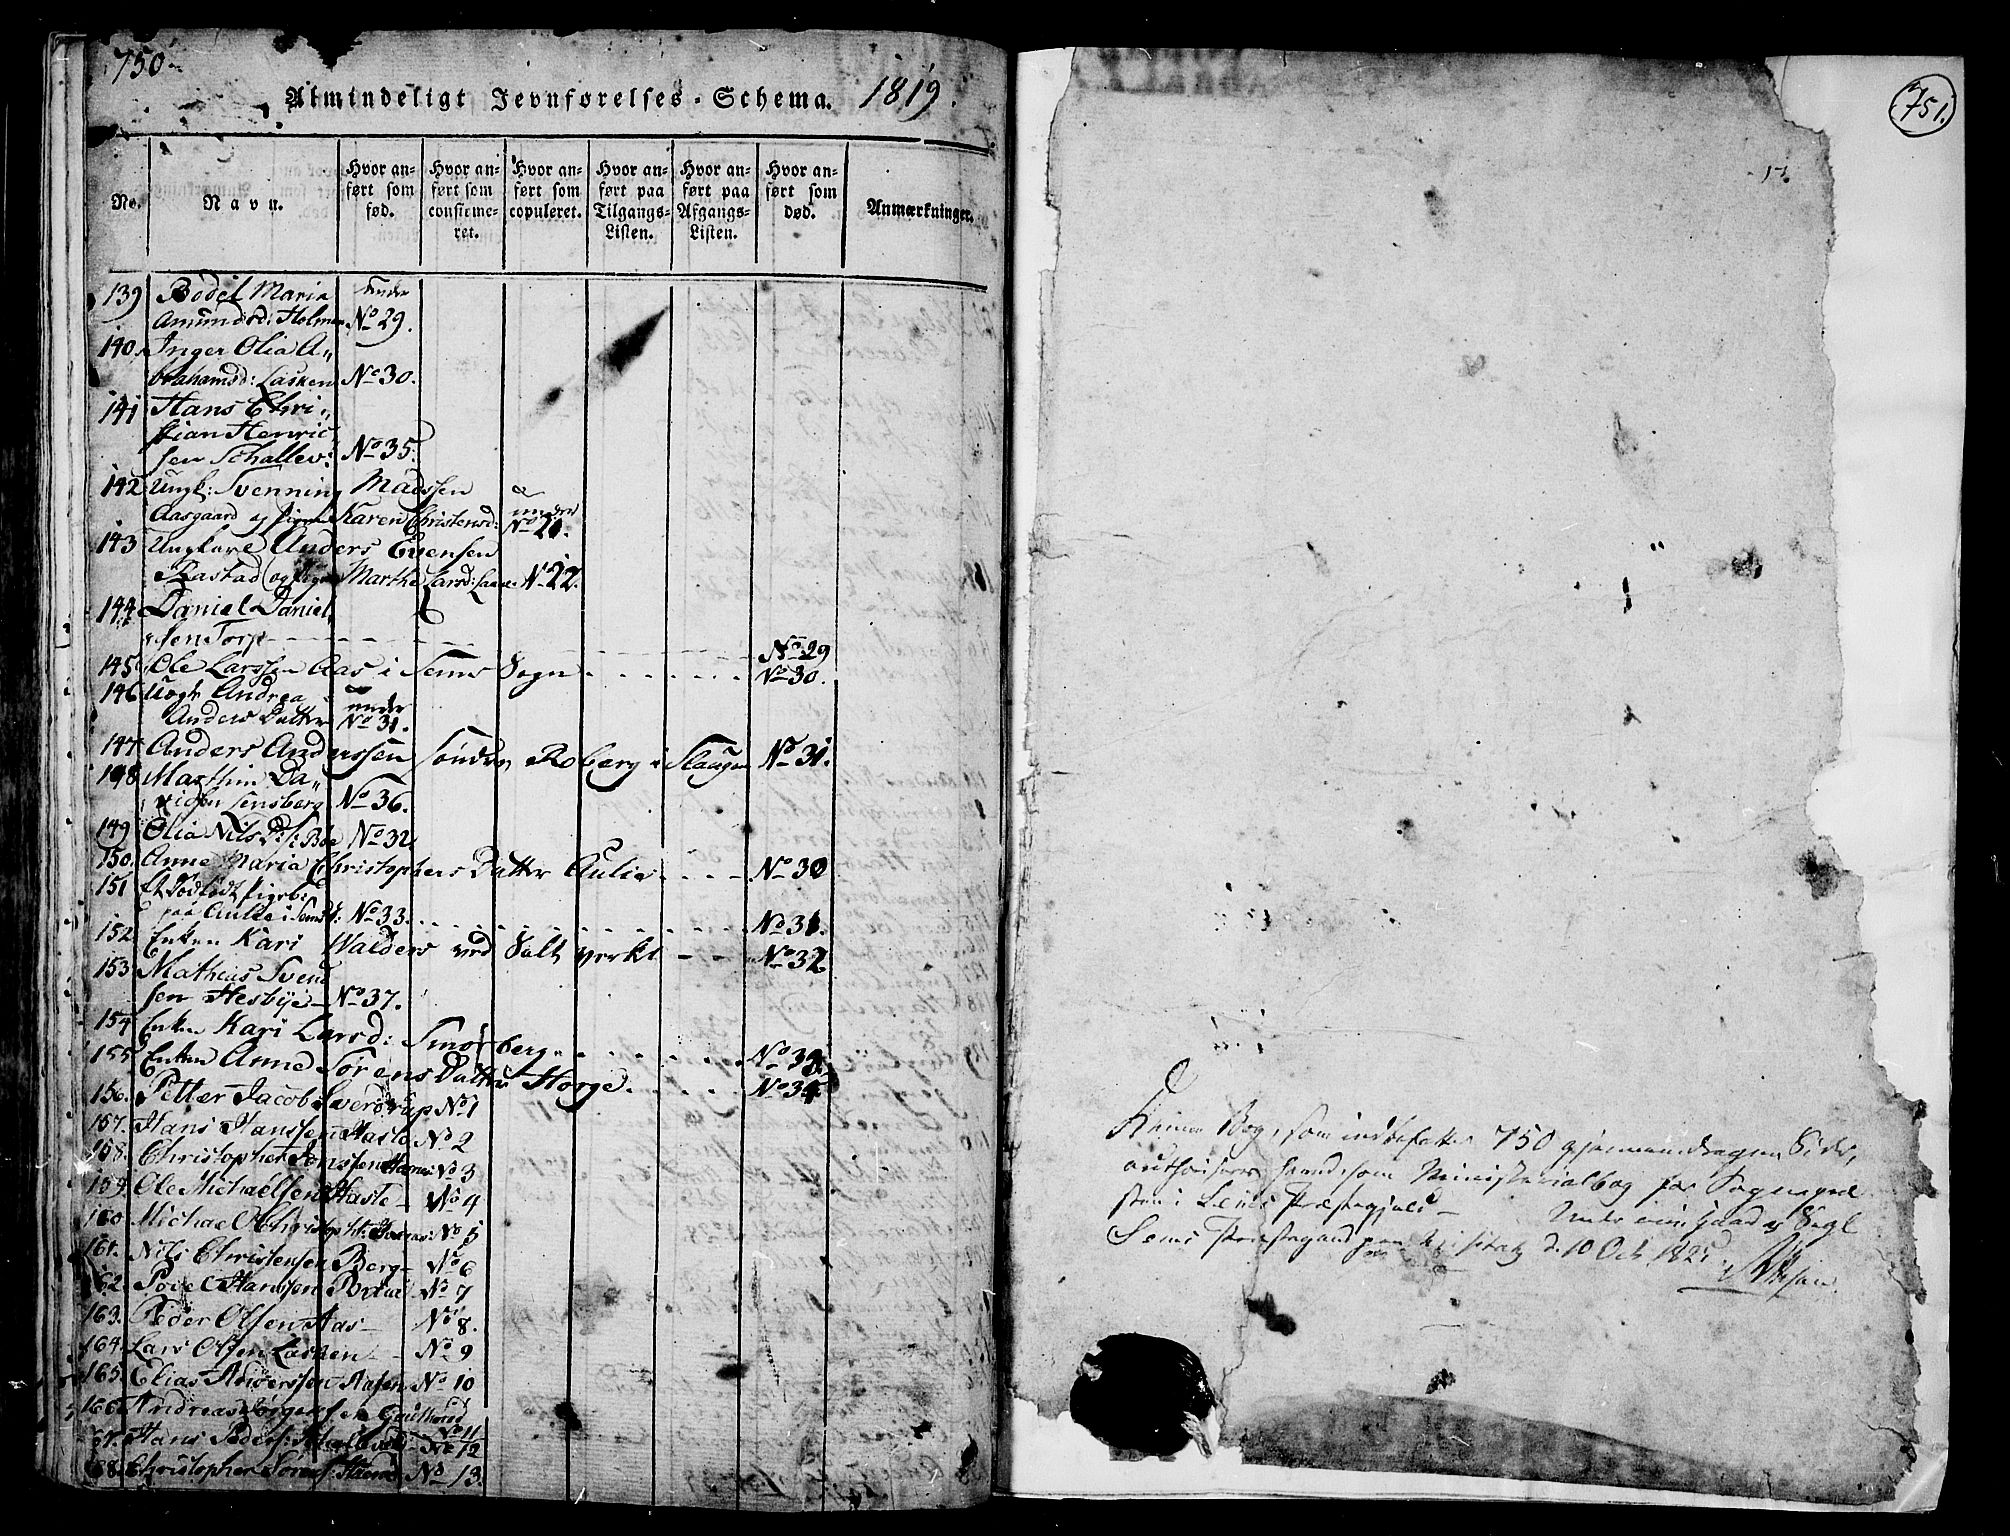 750
Almindeligt Jevnførelses-Schema. 1819.
No.
Navn.
Hvor anført som fød.
Hvor anført som confirmeret.
Hvor anført som copuleret.
Hvor anført paa Tilgangs-Listen.
Hvor anført paa Afgangs-Listen.
Hvor anført som død.
Anmærkninger.
139 Bodel Maria under
Amundsd: Holmen No 29.
140. Inger Olia A„
brahamsd: Lasken No 30.
141 Hans Chri„
stian Henric
sen Schallev: No 35.
142 Ungk: Svenning Madssen
Aasgaard og Karen Christensd: under No 21.
143 Ungkare Anders Evensen
Rastad (og Marthe Larsd: No 22.
144 Daniel Daniel
sen Torp No 29
145 Ole Larssen Aas i Sems Sogn No 30.
146 Andrea under
Anders Datter No 31.
147 Anders Anderssen Søndre Roberg i Slaugn No 31.
148 Marthin Da„
vidsen No 36.
149 Olia Nils D: Bøe No 32
150. Anne Maria Christophers Datter Aulie No 30
151 Et Dødfødt Pigeb:
paa Aulie i Sems S: No 33. No 31.
152 Enken Kari Walders ved Salt verket No 32
153 Mathias Svend
sen Hesbye No 37.
154 Enken Kari Larsd: Smørberg No 33
155. Enken Anne Sørens Datter Horge. No 34
156. Petter Jacob Sverdrup No 1
157. Hans Hanssen Hasle No 2
158. Christopher No 3
159. Ole Michaelsen Hasle No 4
160 Michael Christoph: No 5
161. Nils Christensen Berg No 6
162 Povel Hanssen No 7
163. Peder Olsen Aas No 8.
164. Lars Olsen Lasken No 9
165. Elias Anderssen Aasen No 10
166 Andreas Jørgensen No 11
67. Hans Peders: No 12
68. Christopher Sørens: No 13.
751.
17.
Denne Bog, som indbefatter 750 gjennemdragne Sider,
authoriseres herved som Ministerialbog for Sognepræ
sten i Sems Præstegjeld Under min Haand og Segl
Sems Præstegaard d. 10 Oct.